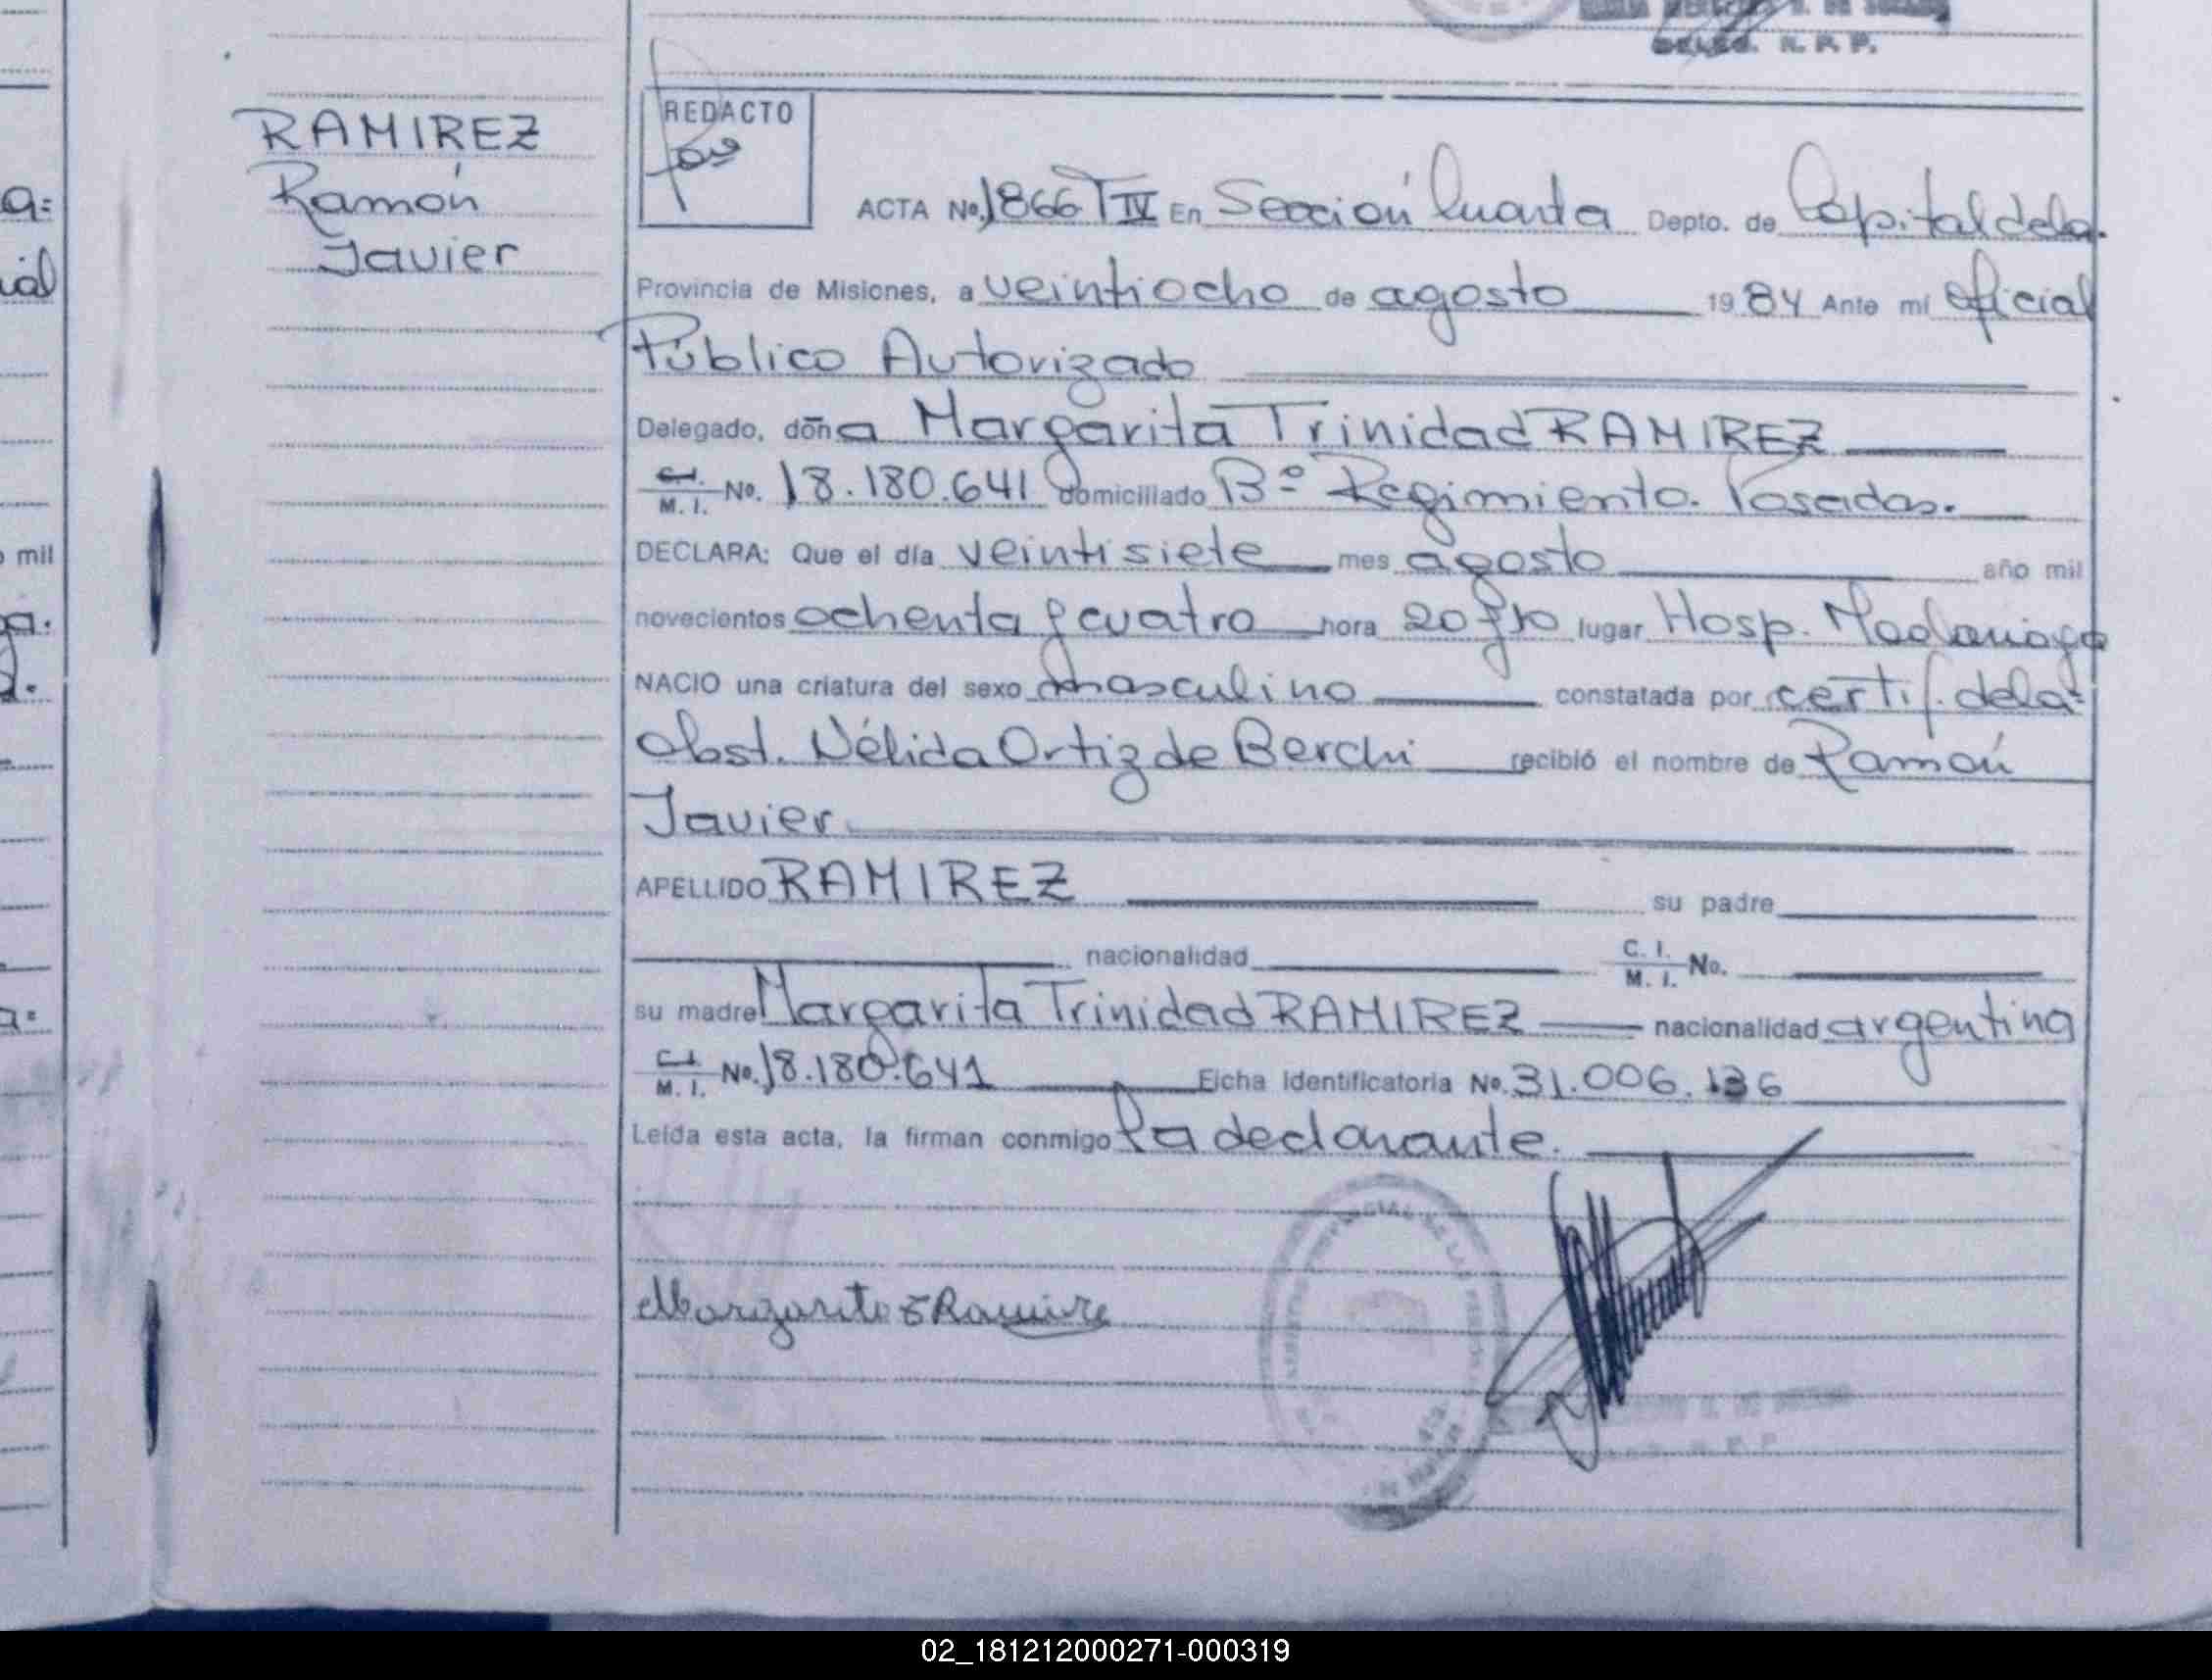 DELEG. R. P. P.
RAMIREZ
Ramón
Javier
REDACTO
ACTA No. 1866 T IV En Sección Cuarta Depto. de Capital de la
Provincia de Misiones, a veintiocho de agosto 1984 Ante mí Oficial
Público Autorizado
Delegado, doña Margarita Trinidad RAMIREZ
C.I. M. I. No. 18.180.641 domiciliado Bº Regimiento. Posadas.
DECLARA: Que el día veintisiete mes agosto año mil
novecientos ochenta y cuatro hora 20 y 10 lugar Hosp. Madariaga
NACIO una criatura del sexo masculino constatada por certif. de la
obst. Nélida Ortiz de Berchi recibió el nombre de Ramón
Javier
APELLIDO RAMIREZ su padre
nacionalidad C. I. M. I. No.
su madre Margarita Trinidad RAMIREZ nacionalidad argentina
C.I. M. I. No. 18.180.641 Ficha identificatoria No. 31.006.136
Leída esta acta, la firman conmigo la declarante.
Margarita T Ramire
a:
ial
o mil
ga.
a:
02_181212000271-000319